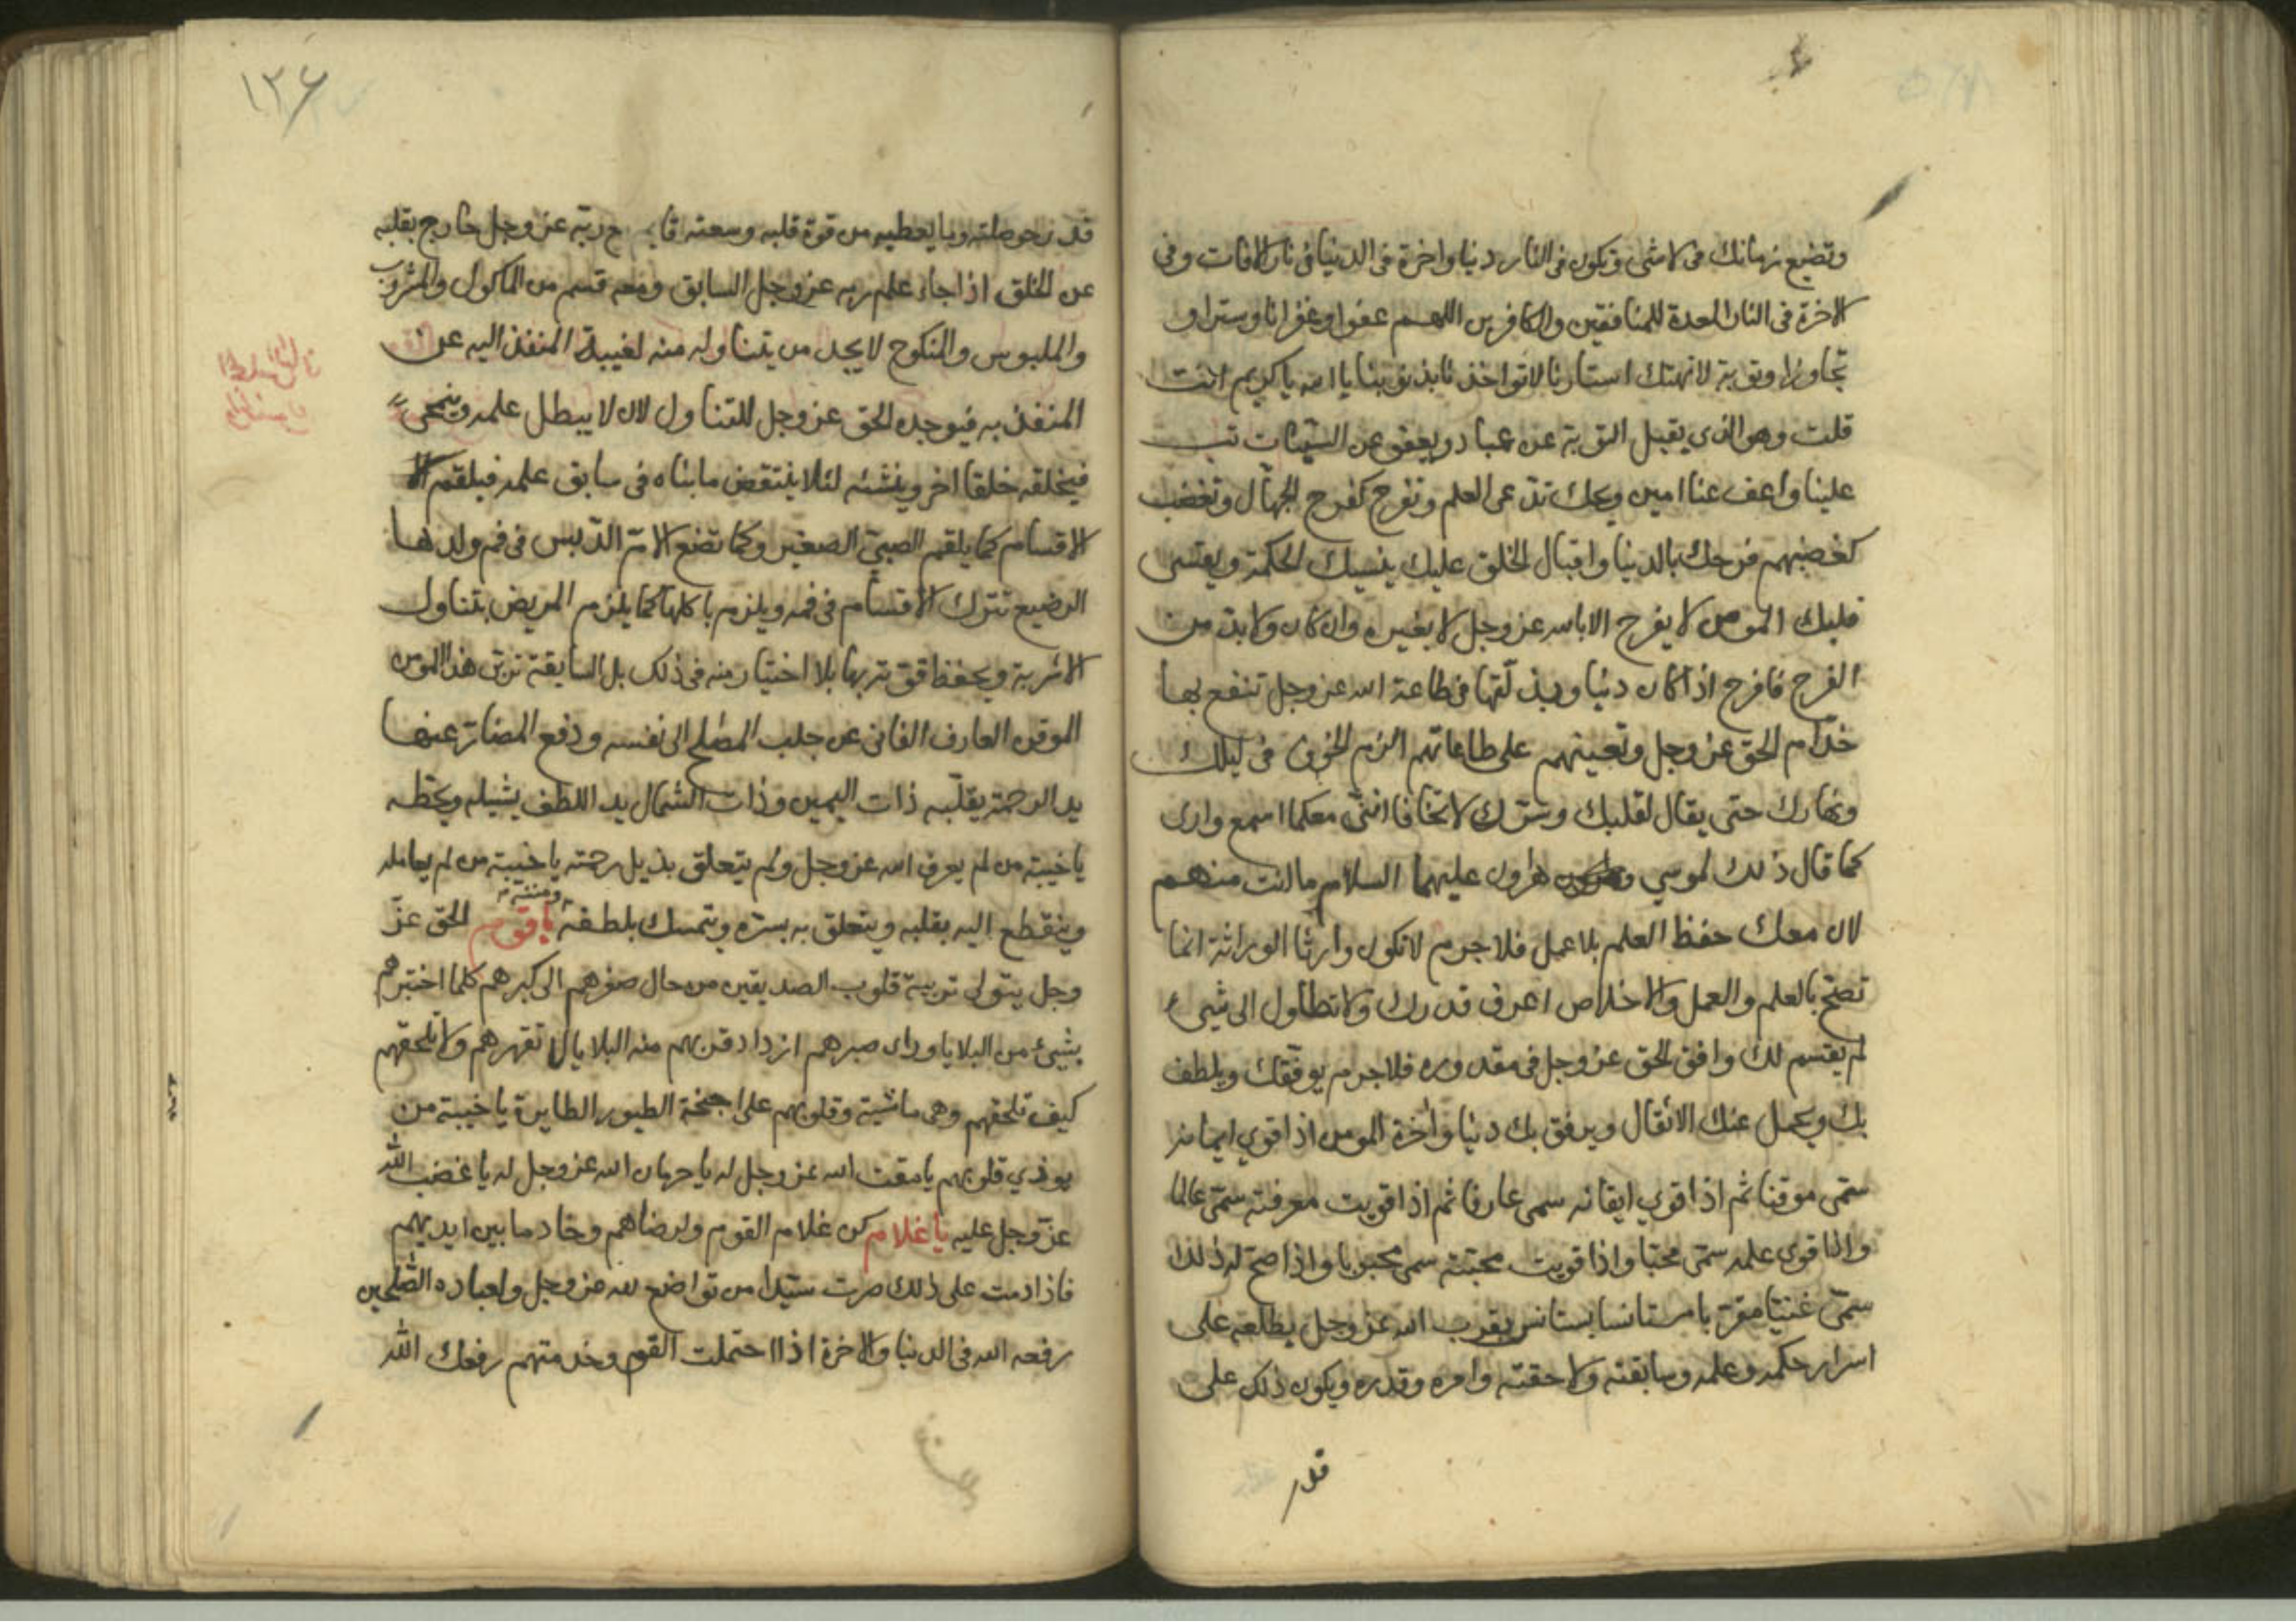 وتضيع زمانك فى لاشئ وتكون فى النار دنيا واخرة فى الدنيا فى نار الافات وفى
الاخرة فى النار المعدة للمنافقين والكافرين اللهم عفوا وغفرانا وسترا و
تجاوزا وتوبة لاتهتك استارنا لاتواخذنا بذنوبنا يا الله يا كريم انت
قلت وهو الذى يقبل التوبة عن عباده ويعفو عن السيئات تب
علينا واعف عنا امين ويحك تدعى العلم وتفرح كفرح الجهال وتغضب
كغضبهم فرحك بالدنيا واقبال الخلق عليك ينسيك الحكمة ويقسى
قلبك المومن لا يفرح الا بالله عز وجل لا بغيره وان كان ولا بد من
الفرح فافرح اذا كان دنيا وبذلتها فى طاعة الله عز وجل تنفع بها
خدام الحق عز وجل وتعينهم على طاعاتهم الزم الخوف فى ليلك
ونهارك حتى يقال لقلبك وسرك لاتخافا اننى معكما اسمع وارى
كما قال ذلك لموسي هارون عليهما السلام ما انت منهم
لان معك حفظ العلم بلا عمل فلا جرم لاتكون وارثا الوراثة انما
تصح بالعلم والعمل والاخلاص اعرف قدرك ولا تطاول الى شيء
لم يقسم لك وافق الحق عز وجل فى مقدوره فلا جرم يوفقك ويلطف
بك ويحمل عنك الاثقال ويرفق بك دنيا واخرة المومن اذا قوي ايمانه
سمى موقنا ثم اذا قوي ايقانه سمى عارفا ثم اذا قويت معرفته سمى عالما
واذا قوى علمه سمى محبا واذا قويت محبته سمى محبوبا واذا صح له ذلك
سمى غنيا مقربا مستانسا يستانس بقرب الله عز وجل يطلعه على
اسرار حكمه وعلمه وسابقته ولاحقته وامره وقدره ويكون ذلك على
قدر
١٣٦
قدر حوصلته وما يعطيه من قوة قلبه وسعته قايم مع ربه عز وجل خارج بقلبه
عن الخلق اذا جاء علم ربه عز وجل السابق ومعه قسم من الماكول والمشروب
والملبوس والمنكوح لا يجد من يتناوله منه لغيبة المنفذ اليه عن
المنفذ به فيوجده الحق عز وجل للتناول لان لا يبطل علمه وينمحى
فيخلقه خلقا اخر وينشئه لئلا ينتقض ما بناه فى سابق علمه فيلقمه
الاقسام كما يلقم الصبي الصغير وكما تضع الام الدبس فى فم ولدها
الرضيع تترك الاقسام فى فمه ويلزم باكلها كما يلزم المريض بتناول
الاشربة ويحفظ قوته بها بلا اختيار منه فى ذلك بل السابقة تربى هذا المومن
الموقن العارف الفانى عن جلب المصلح الى نفسه ودفع المضار عنها
يد الرحمة يقلبه ذات اليمين وذات الشمال يد اللطف يشيله ويحطه
يا خيبة من لم يعرف الله عز وجل ولم يتعلق بذيل رحمته يا خيبة من لم يعامله
وينقطع اليه بقلبه ويتعلق به بسره ويتمسك بلطفه ومننه يا قوم الحق عز
وجل يتولى تربية قلوب الصديقين من حال صغرهم الى كبرهم كلما اختبرهم
بشيئ من البلايا وراى صبرهم ازداد قربهم منه البلايا لا تقهرهم ولا تلحقهم
كيف تلحقهم وهى ماشية وقلوبهم على اجنحة الطيور الطايرة يا خيبة من
يوذي قلوبهم يا مقت الله عز وجل له يا حرمان الله عز وجل له يا غضب الله
عز وجل عليه يا غلام كن غلام القوم وارضاهم وخادما بين ايديهم
فاذا دمت على ذلك صرت سيدا من تواضع لله عز وجل ولعباده الصلحين
رفعه الله فى الدنيا والاخرة اذا احتملت القوم وخدمتهم رفعك الله